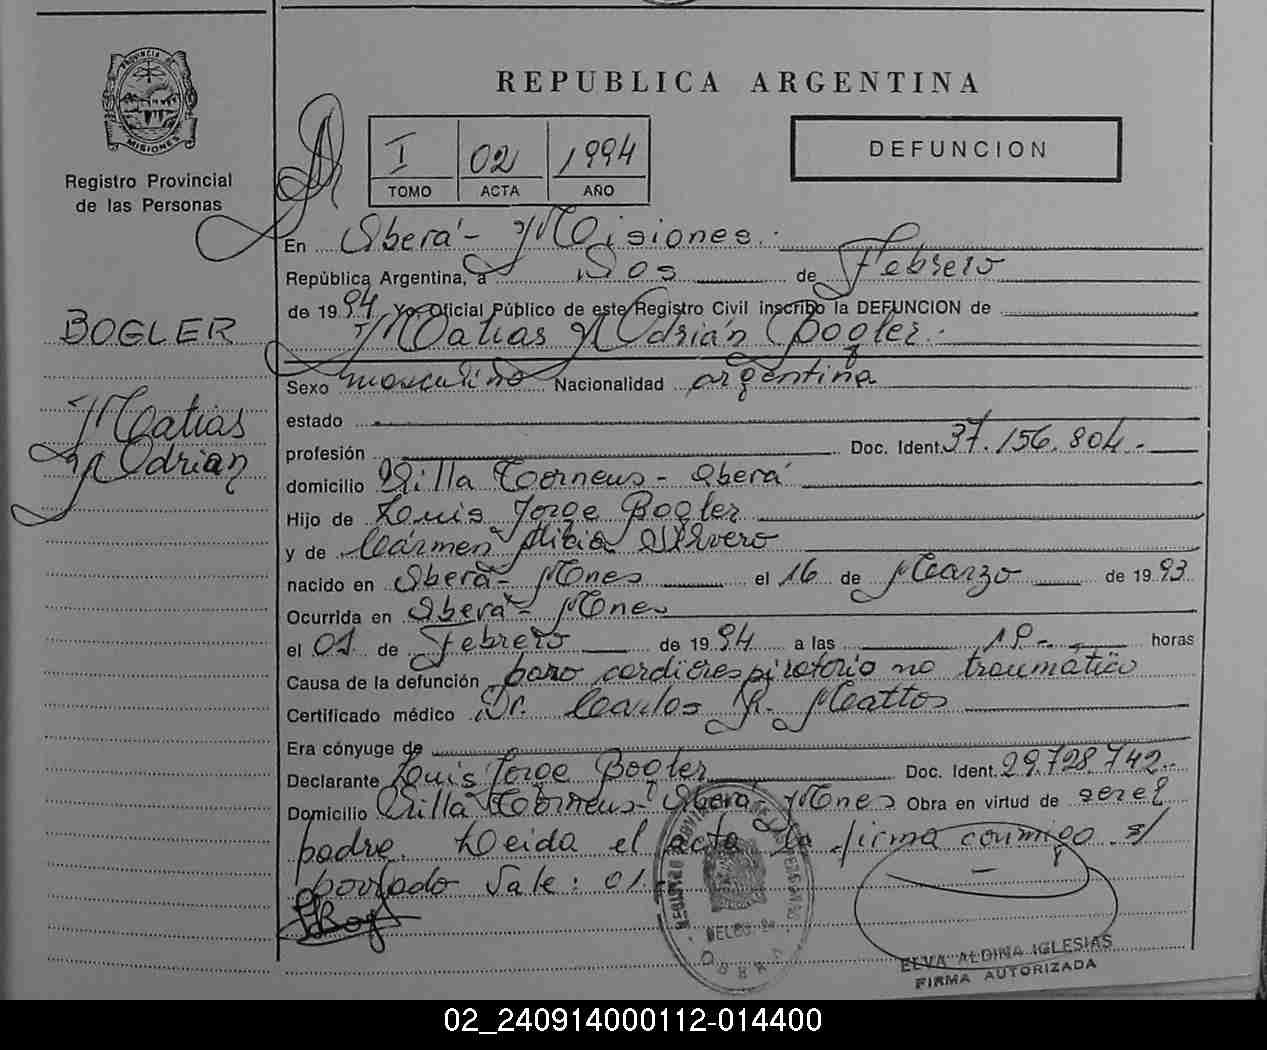 PROVINCIA DE
MISIONES
Registro Provincial
de las Personas
BOGLER
Matias
Adrian
REPUBLICA ARGENTINA
I 02 1994
TOMO ACTA AÑO
DEFUNCION
En Oberá - Misiones.
República Argentina, a Dos de Febrero
de 1994 Yo, Oficial Público de este Registro Civil inscribo la DEFUNCION de
Matias Adrián Bogler.
Sexo masculino Nacionalidad argentina
estado
profesión Doc. Ident. 37.156.804.-
domicilio Villa Torneus - Oberá
Hijo de Louis Jorge Bogler
y de Cármen Silvero
nacido en Oberá - Mnes el 16 de Marzo de 1993
Ocurrida en Oberá - Mnes
el 01 de Febrero de 1994 a las 19.- horas
Causa de la defunción paro cardiorespiratorio no traumático
Certificado médico Dr. Carlos R. Mattos
Era cónyuge de
Declarante Louis Jorge Bogler Doc. Ident. 29.728.742.-
Domicilio Villa Torneus - Oberá - Mnes Obra en virtud de ser el
padre. Leida el acta la firma conmigo s/
borrado Vale: 01
ELVA ALDINA IGLESIAS
FIRMA AUTORIZADA
02_240914000112-014400